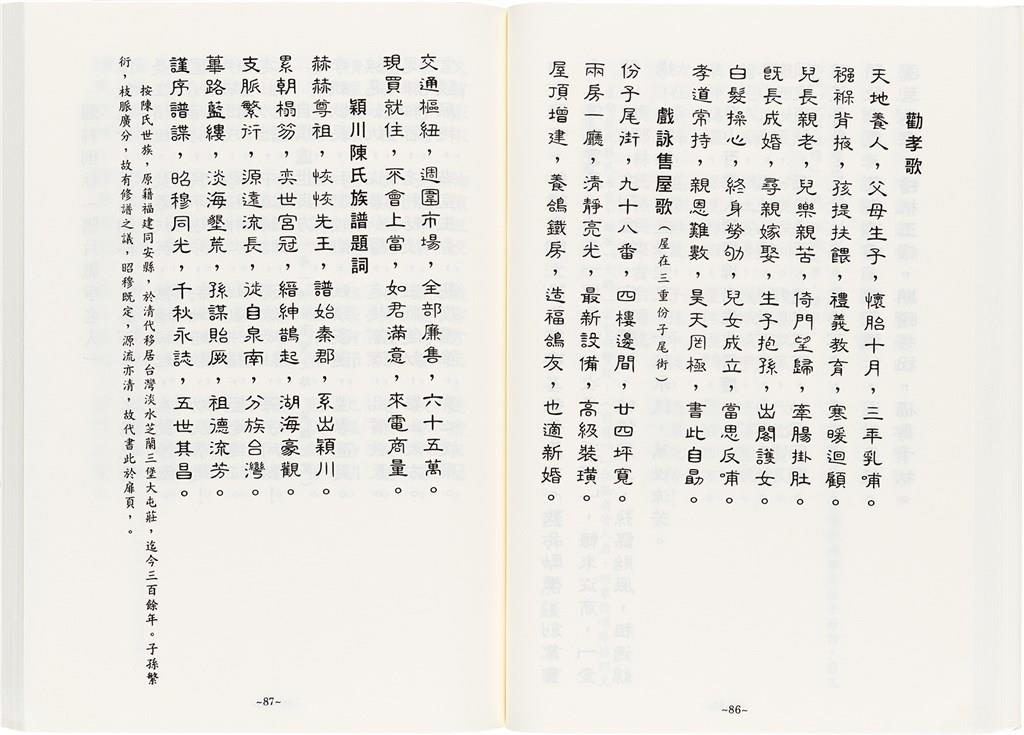 勸孝歌
天地養人，父母生子，懷胎十月，三年乳哺。
襁褓背掖，孩提扶餵，禮義教育，寒暖迴顧。
兒長親老，兒樂親苦，倚門望歸，牽腸掛肚。
既長成婚，尋親嫁娶，生子抱孫，出閣護女。
白髮操心，終身勞劬，兒女成立，當思反哺。
孝道常持，親恩難數，昊天罔極，書此自勗。
戲詠售屋歌（屋在三重份子尾街）
份子尾街，九十八番，四樓邊間，廿四坪寬。
兩房一廳，清靜亮光，最新設備，高級裝璜。
屋頂增建，養鴿鐵房，造福鴿友，也適新婚。
~86~
交通樞紐，週圍市場，全部廉售，六十五萬。
現買就住，不會上當，如君滿意，來電商量。
穎川陳氏族譜題詞
赫赫尊祖，恢恢先王，譜始秦郡，系出穎川。
累朝榻笏，奕世宮冠，縉紳鵲起，湖海豪觀。
支脈繁衍，源遠流長，徙自泉南，分族台灣。
蓽路藍縷，淡海墾荒，孫謀貽厥，祖德流芳。
謹序譜諜，昭穆同光，千秋永誌，五世其昌。
按陳氏世族，原籍福建同安縣，於清代移居台灣淡水芝蘭三堡大屯莊，迄今三百餘年。子孫繁
衍，枝脈廣分，故有修譜之議，昭穆既定，源流亦清，故代書此於扉頁，。
~87~